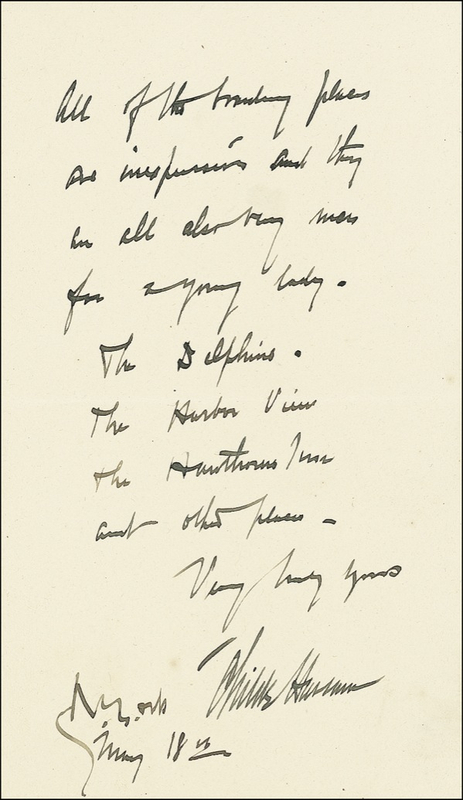 All of the boarding places
are inexpensive and they
are all also very nice
for a young lady.
The Delphine.
The Harbor View
the Hawthorne Inn
and other places -
Very truly yours
Childe Hassam
N. York
May 18th